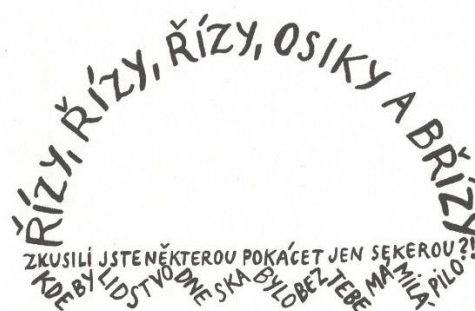 ŘÍZY, ŘÍZY, ŘÍZY, OSIKY A BŘÍZY
ZKUSILI JSTE NĚKTEROU POKÁCET JEN SEKEROU?!
KDE BY LIDSTVO DNESKA BYLO BEZ TEBE MÁ MILÁ PILO?